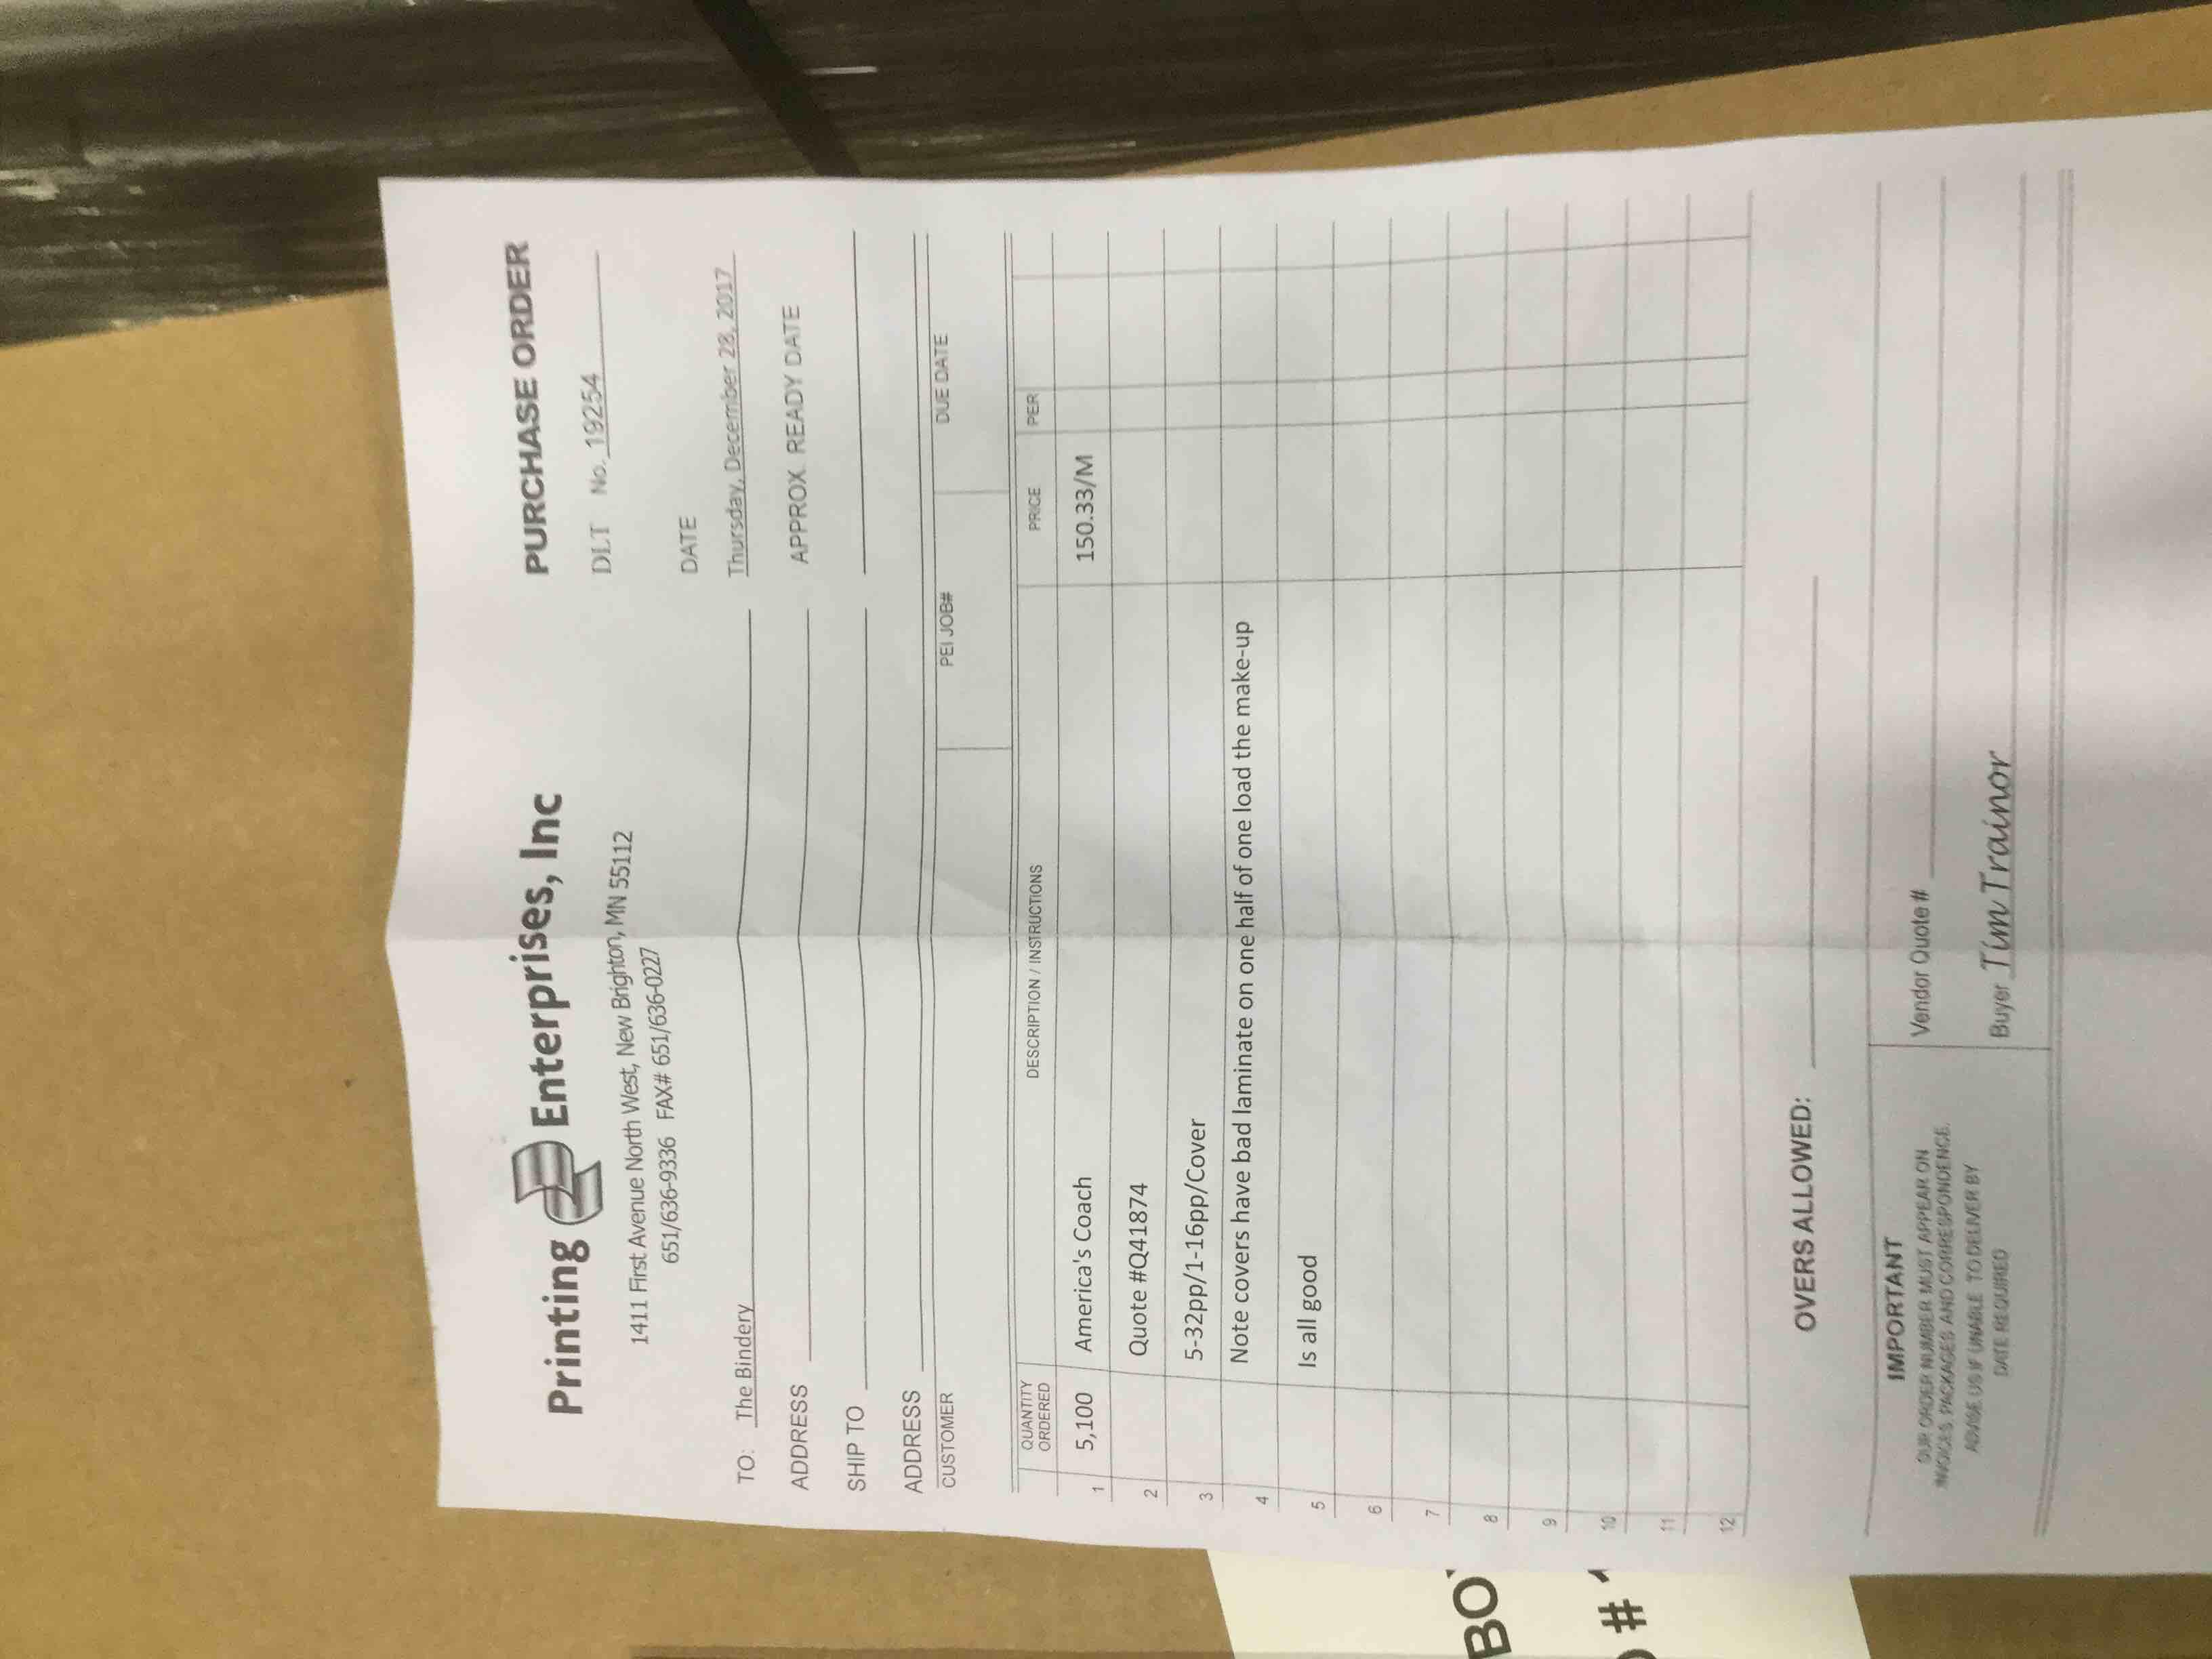 Printing Enterprises, Inc
PURCHASE ORDER
1411 First Avenue North West, New Brighton, MN 55112
651/636-9336 FAX# 651/636-0227
DLT No. 19254
DATE
TO: The Bindery
Thursday, December 28, 2017
ADDRESS
APPROX. READY DATE
SHIP TO
ADDRESS
CUSTOMER PEI JOB# DUE DATE
QUANTITY ORDERED DESCRIPTION / INSTRUCTIONS PRICE PER
1 5,100 America's Coach 150.33/M
2 Quote #Q41874
3 5-32pp/1-16pp/Cover
4 Note covers have bad laminate on one half of one load the make-up
5 Is all good
6
7
8
9
10
11
12
OVERS ALLOWED:
IMPORTANT
OUR ORDER NUMBER MUST APPEAR ON
INVOICES, PACKAGES AND CORRESPONDENCE.
ADVISE US IF UNABLE TO DELIVER BY
DATE REQUIRED
Vendor Quote #
Buyer Tim Trainor
BO
#